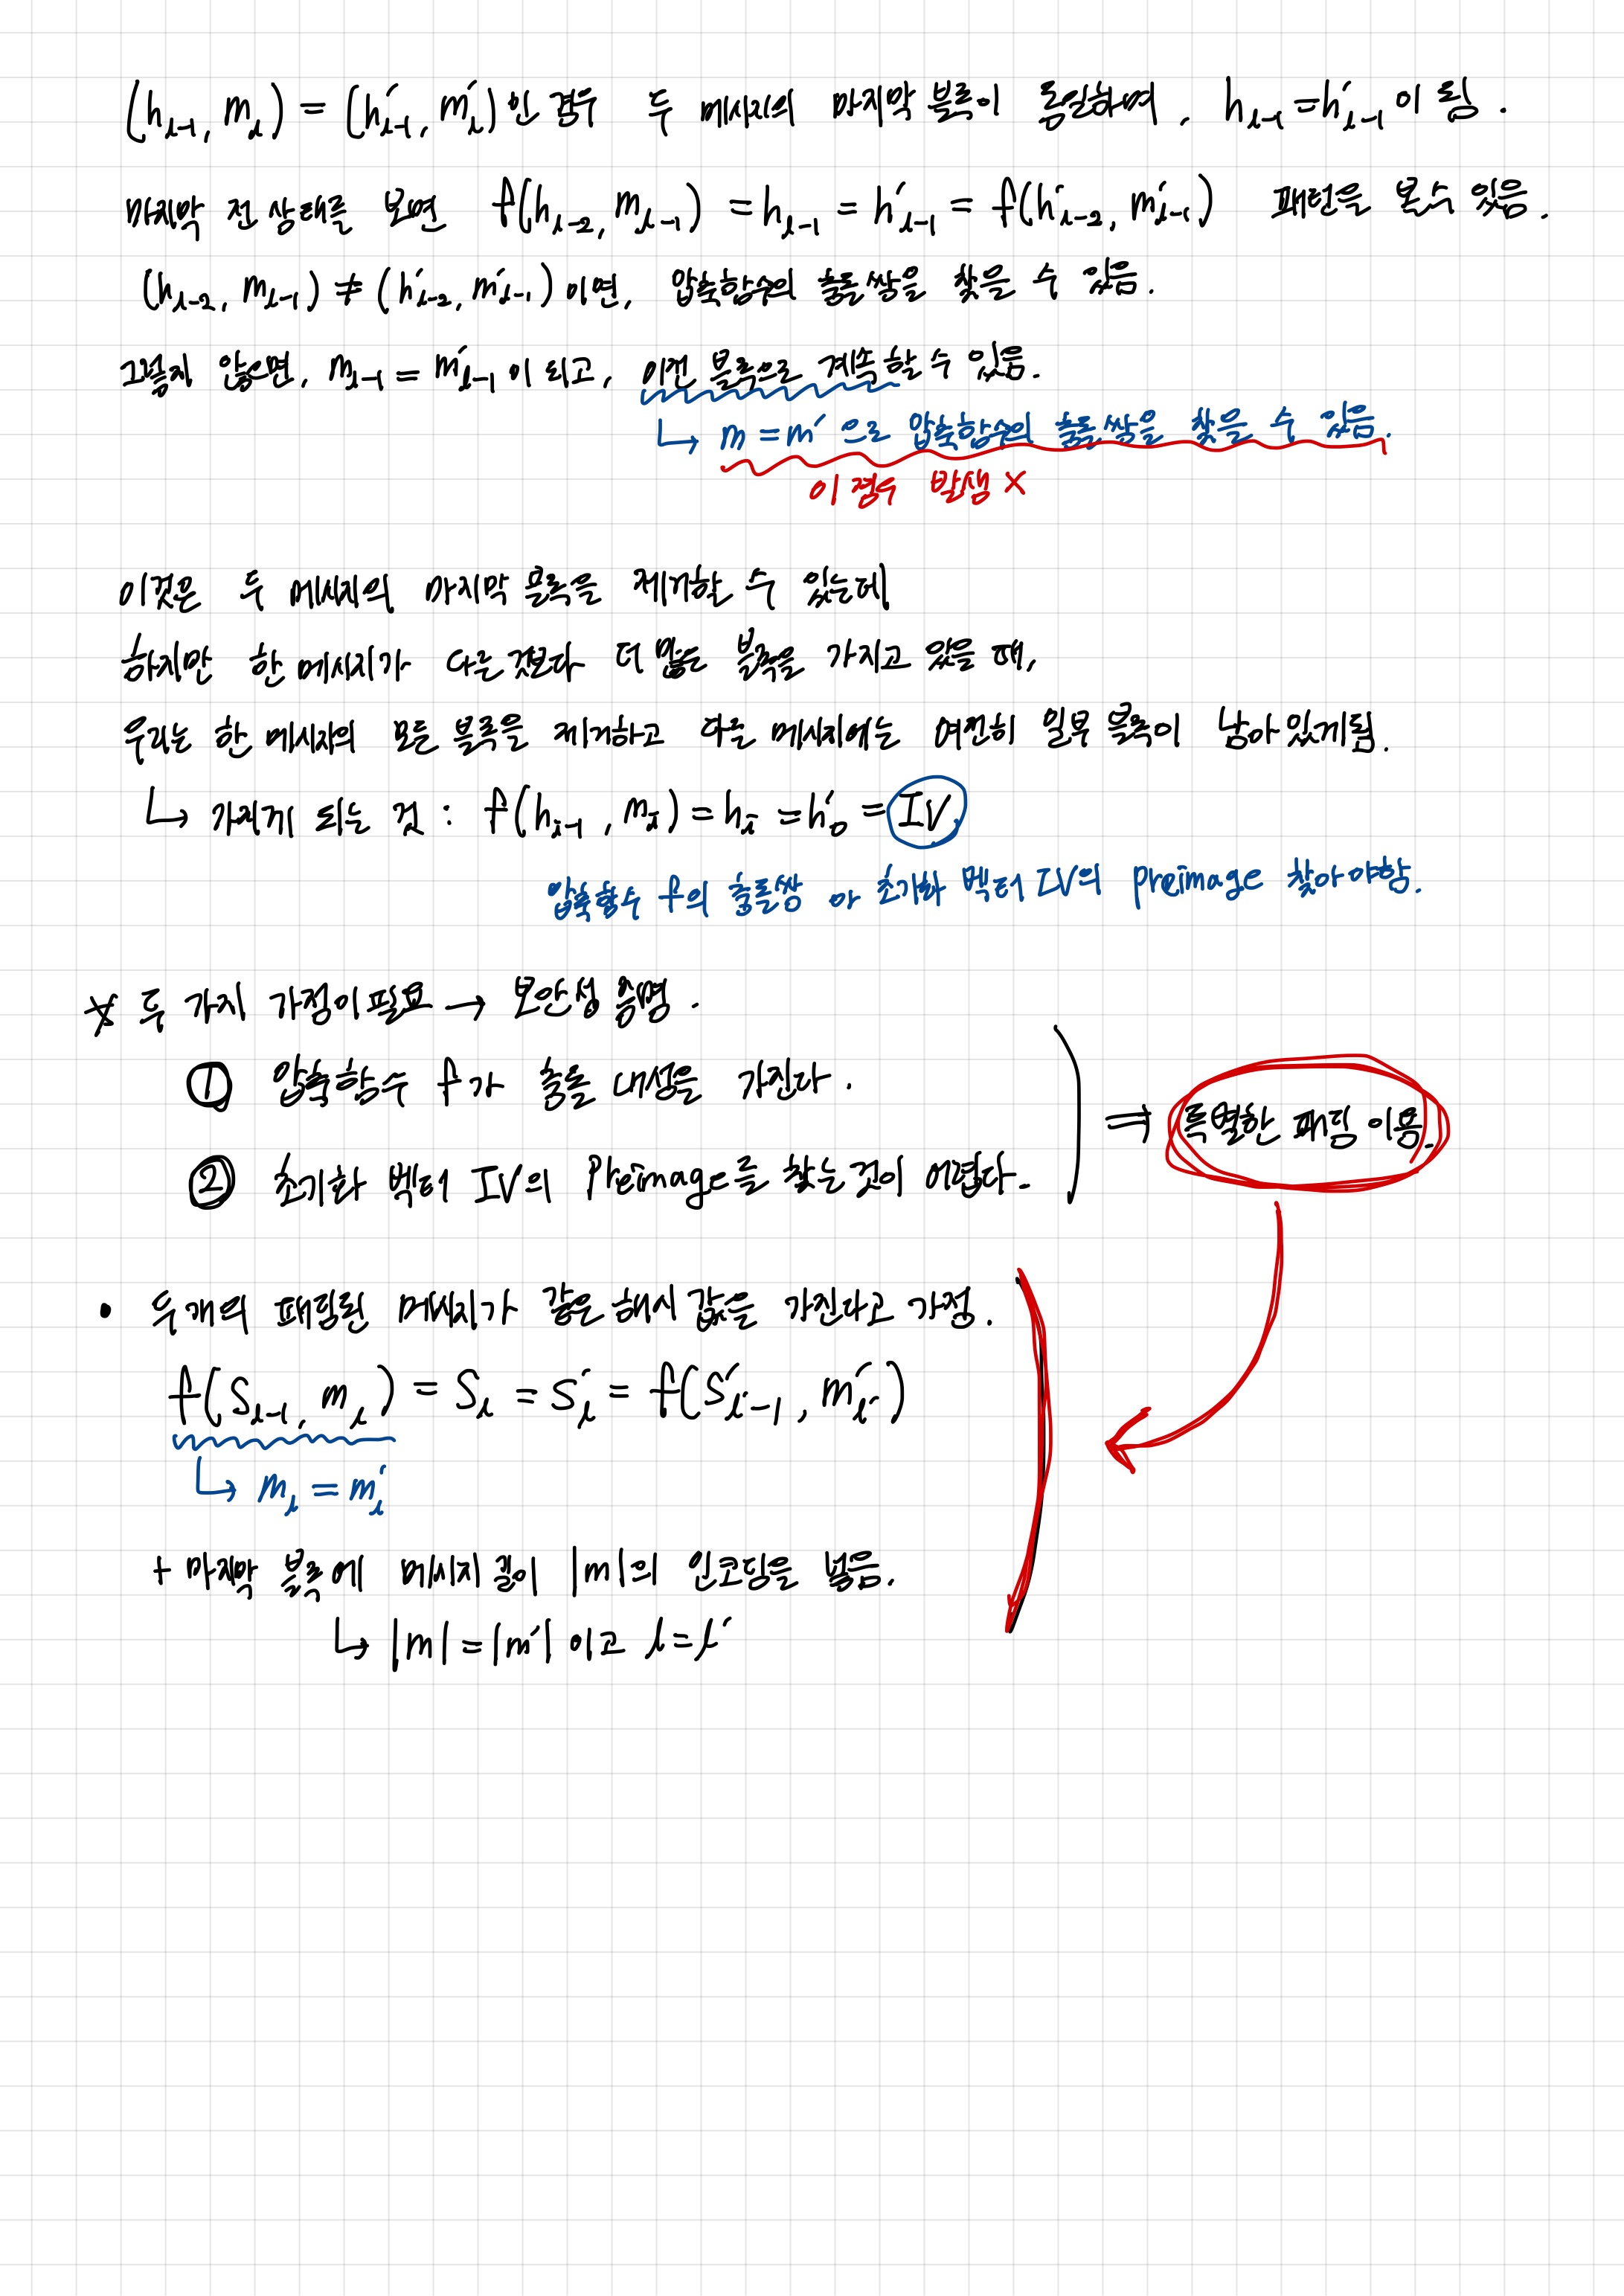 (h_{l-1}, m_l) = (h'_{l-1}, m'_l) 인 경우 두 메시지의 마지막 블록이 동일하며, h_{l-1} = h'_{l-1} 이 됨.
마지막 전 상태를 보면 f(h_{l-2}, m_{l-1}) = h_{l-1} = h'_{l-1} = f(h'_{l-2}, m'_{l-1}) 패턴을 볼 수 있음.
(h_{l-2}, m_{l-1}) ≠ (h'_{l-2}, m'_{l-1}) 이면, 압축함수의 충돌쌍을 찾을 수 있음.
그렇지 않으면, m_{l-1} = m'_{l-1} 이 되고, 이전 블록으로 계속할 수 있음.
↳ m = m' 으로 압축함수의 충돌쌍을 찾을 수 있음.
이 경우 발생 X
이것은 두 메시지의 마지막 블록을 제거할 수 있는데
하지만 한 메시지가 다른 것보다 더 많은 블록을 가지고 있을 때,
우리는 한 메시지의 모든 블록을 제거하고 다른 메시지에는 여전히 일부 블록이 남아있게됨.
↳ 가지게 되는 것 : f(h_{i-1}, m_i) = h_i = h'_0 = IV
압축함수 f의 충돌쌍 or 초기화 벡터 IV의 preimage 찾아야함.
* 두 가지 가정이 필요 → 보안성 증명.
① 압축함수 f가 충돌 내성을 가진다.
② 초기화 벡터 IV의 Preimage를 찾는것이 어렵다.
⇒ 특별한 패딩 이용.
• 두개의 패딩된 메시지가 같은 해시 값을 가진다고 가정.
f(S_{l-1}, m_l) = S_l = S'_l = f(S'_{l'-1}, m'_{l'})
↳ m_l = m'_l
+ 마지막 블록에 메시지 길이 |m|의 인코딩을 넣음.
↳ |m| = |m'| 이고 l = l'